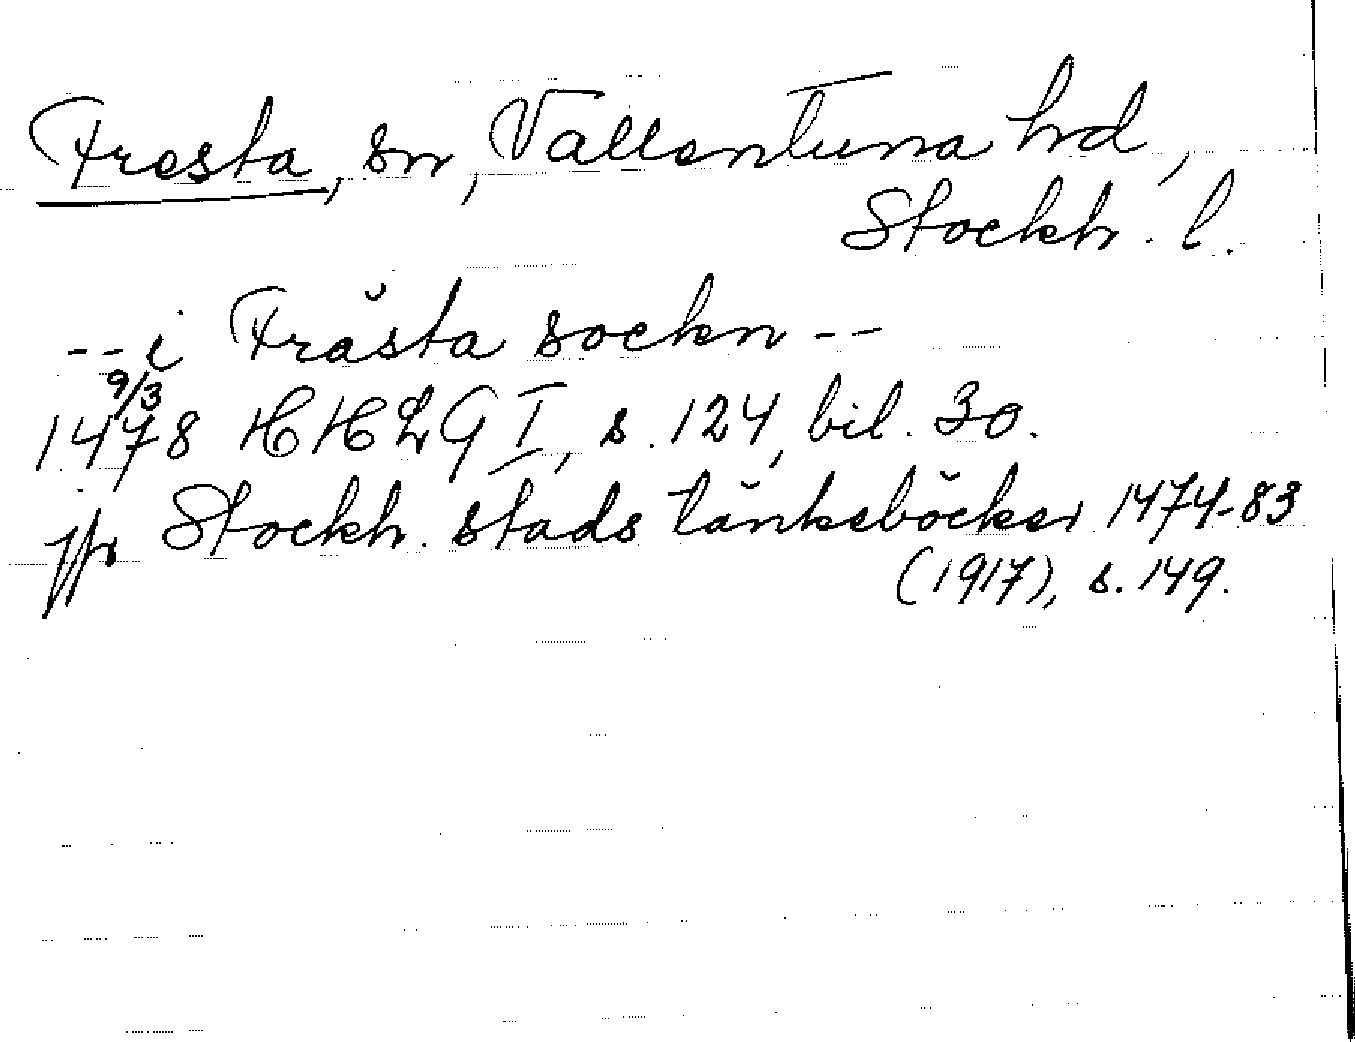 Fresta, sn, Vallentuna hd,
Stockh. l.
--i Frästa sockn --
9/3
1478 HHLG I, s. 124, bil. 30.
jfr Stockh. stads tänkeböcker 1474-83
(1917), s. 149.